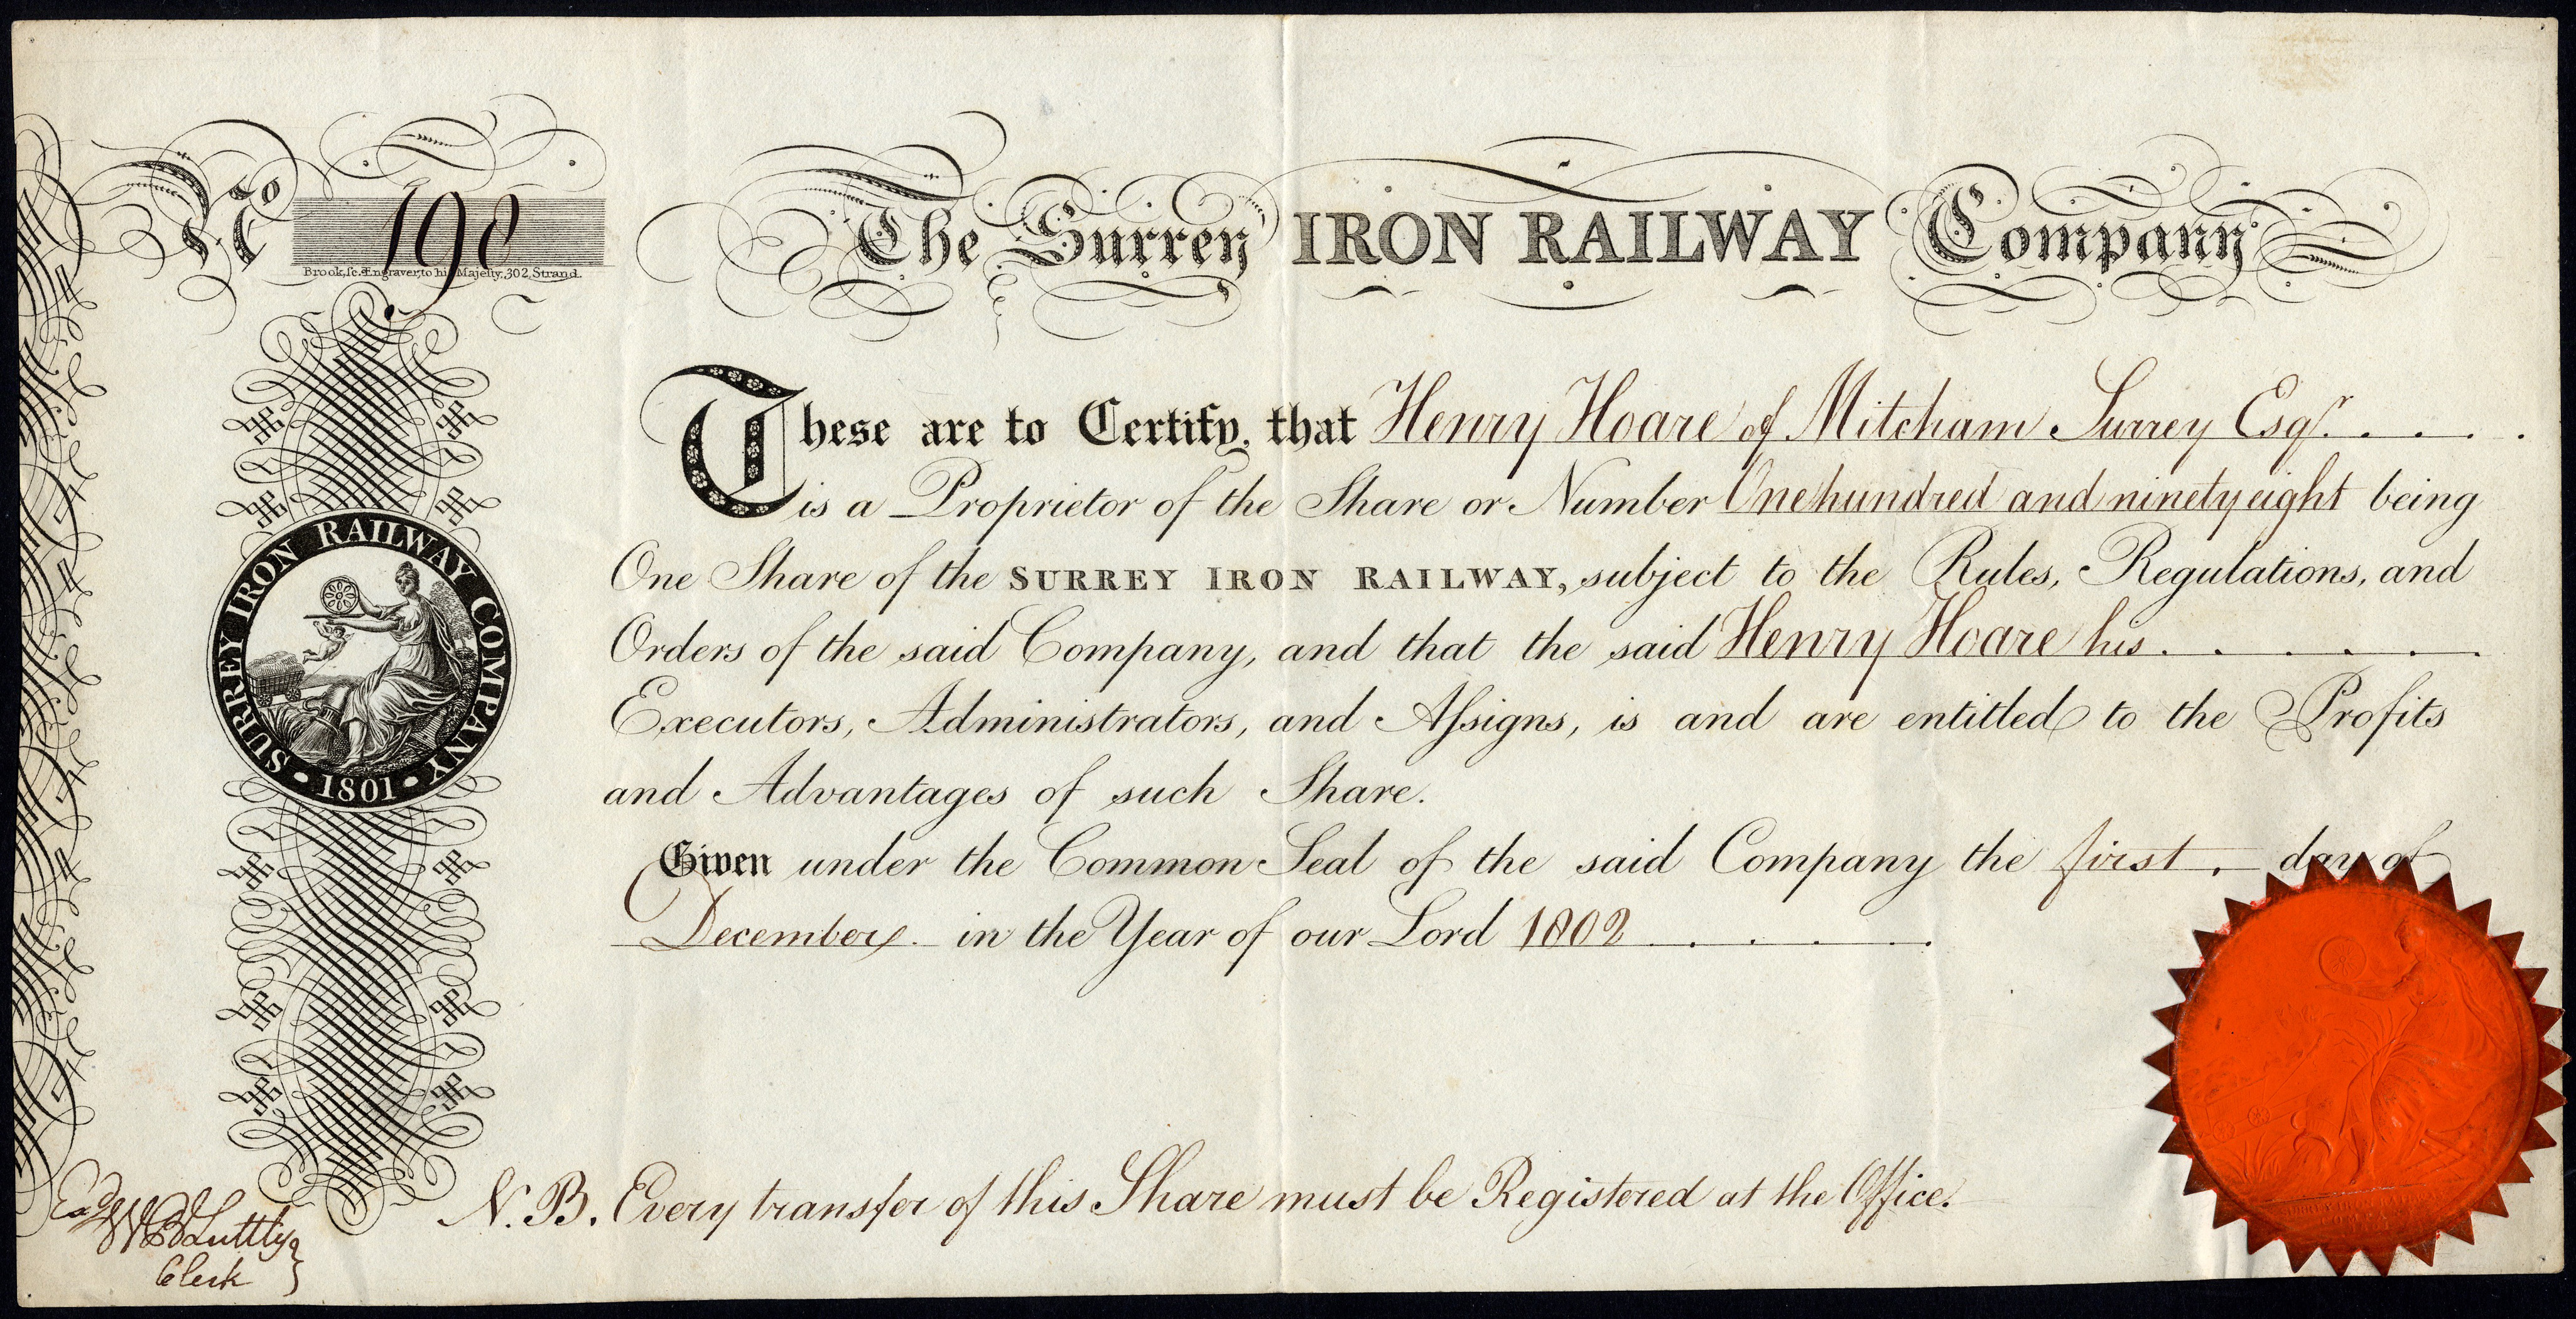 No 198
Brook, sc. Engraver to his Majesty, 302, Strand.
The Surrey IRON RAILWAY Company
These are to Certify, that Henry Hoare of Mitcham Surrey Esqr. . . . .
is a Proprietor of the Share or Number One hundred and ninety eight being
One Share of the SURREY IRON RAILWAY, subject to the Rules, Regulations, and
Orders of the said Company, and that the said Henry Hoare his . . . . . .
Executors, Administrators, and Aſsigns, is and are entitled to the Profits
and Advantages of such Share.
Given under the Common Seal of the said Company the first . day of
December . in the Year of our Lord 1802 . . . .
SURREY IRON RAILWAY COMPANY
· 1801 ·
N. B. Every transfer of this Share must be Registered at the Office.
Clerk